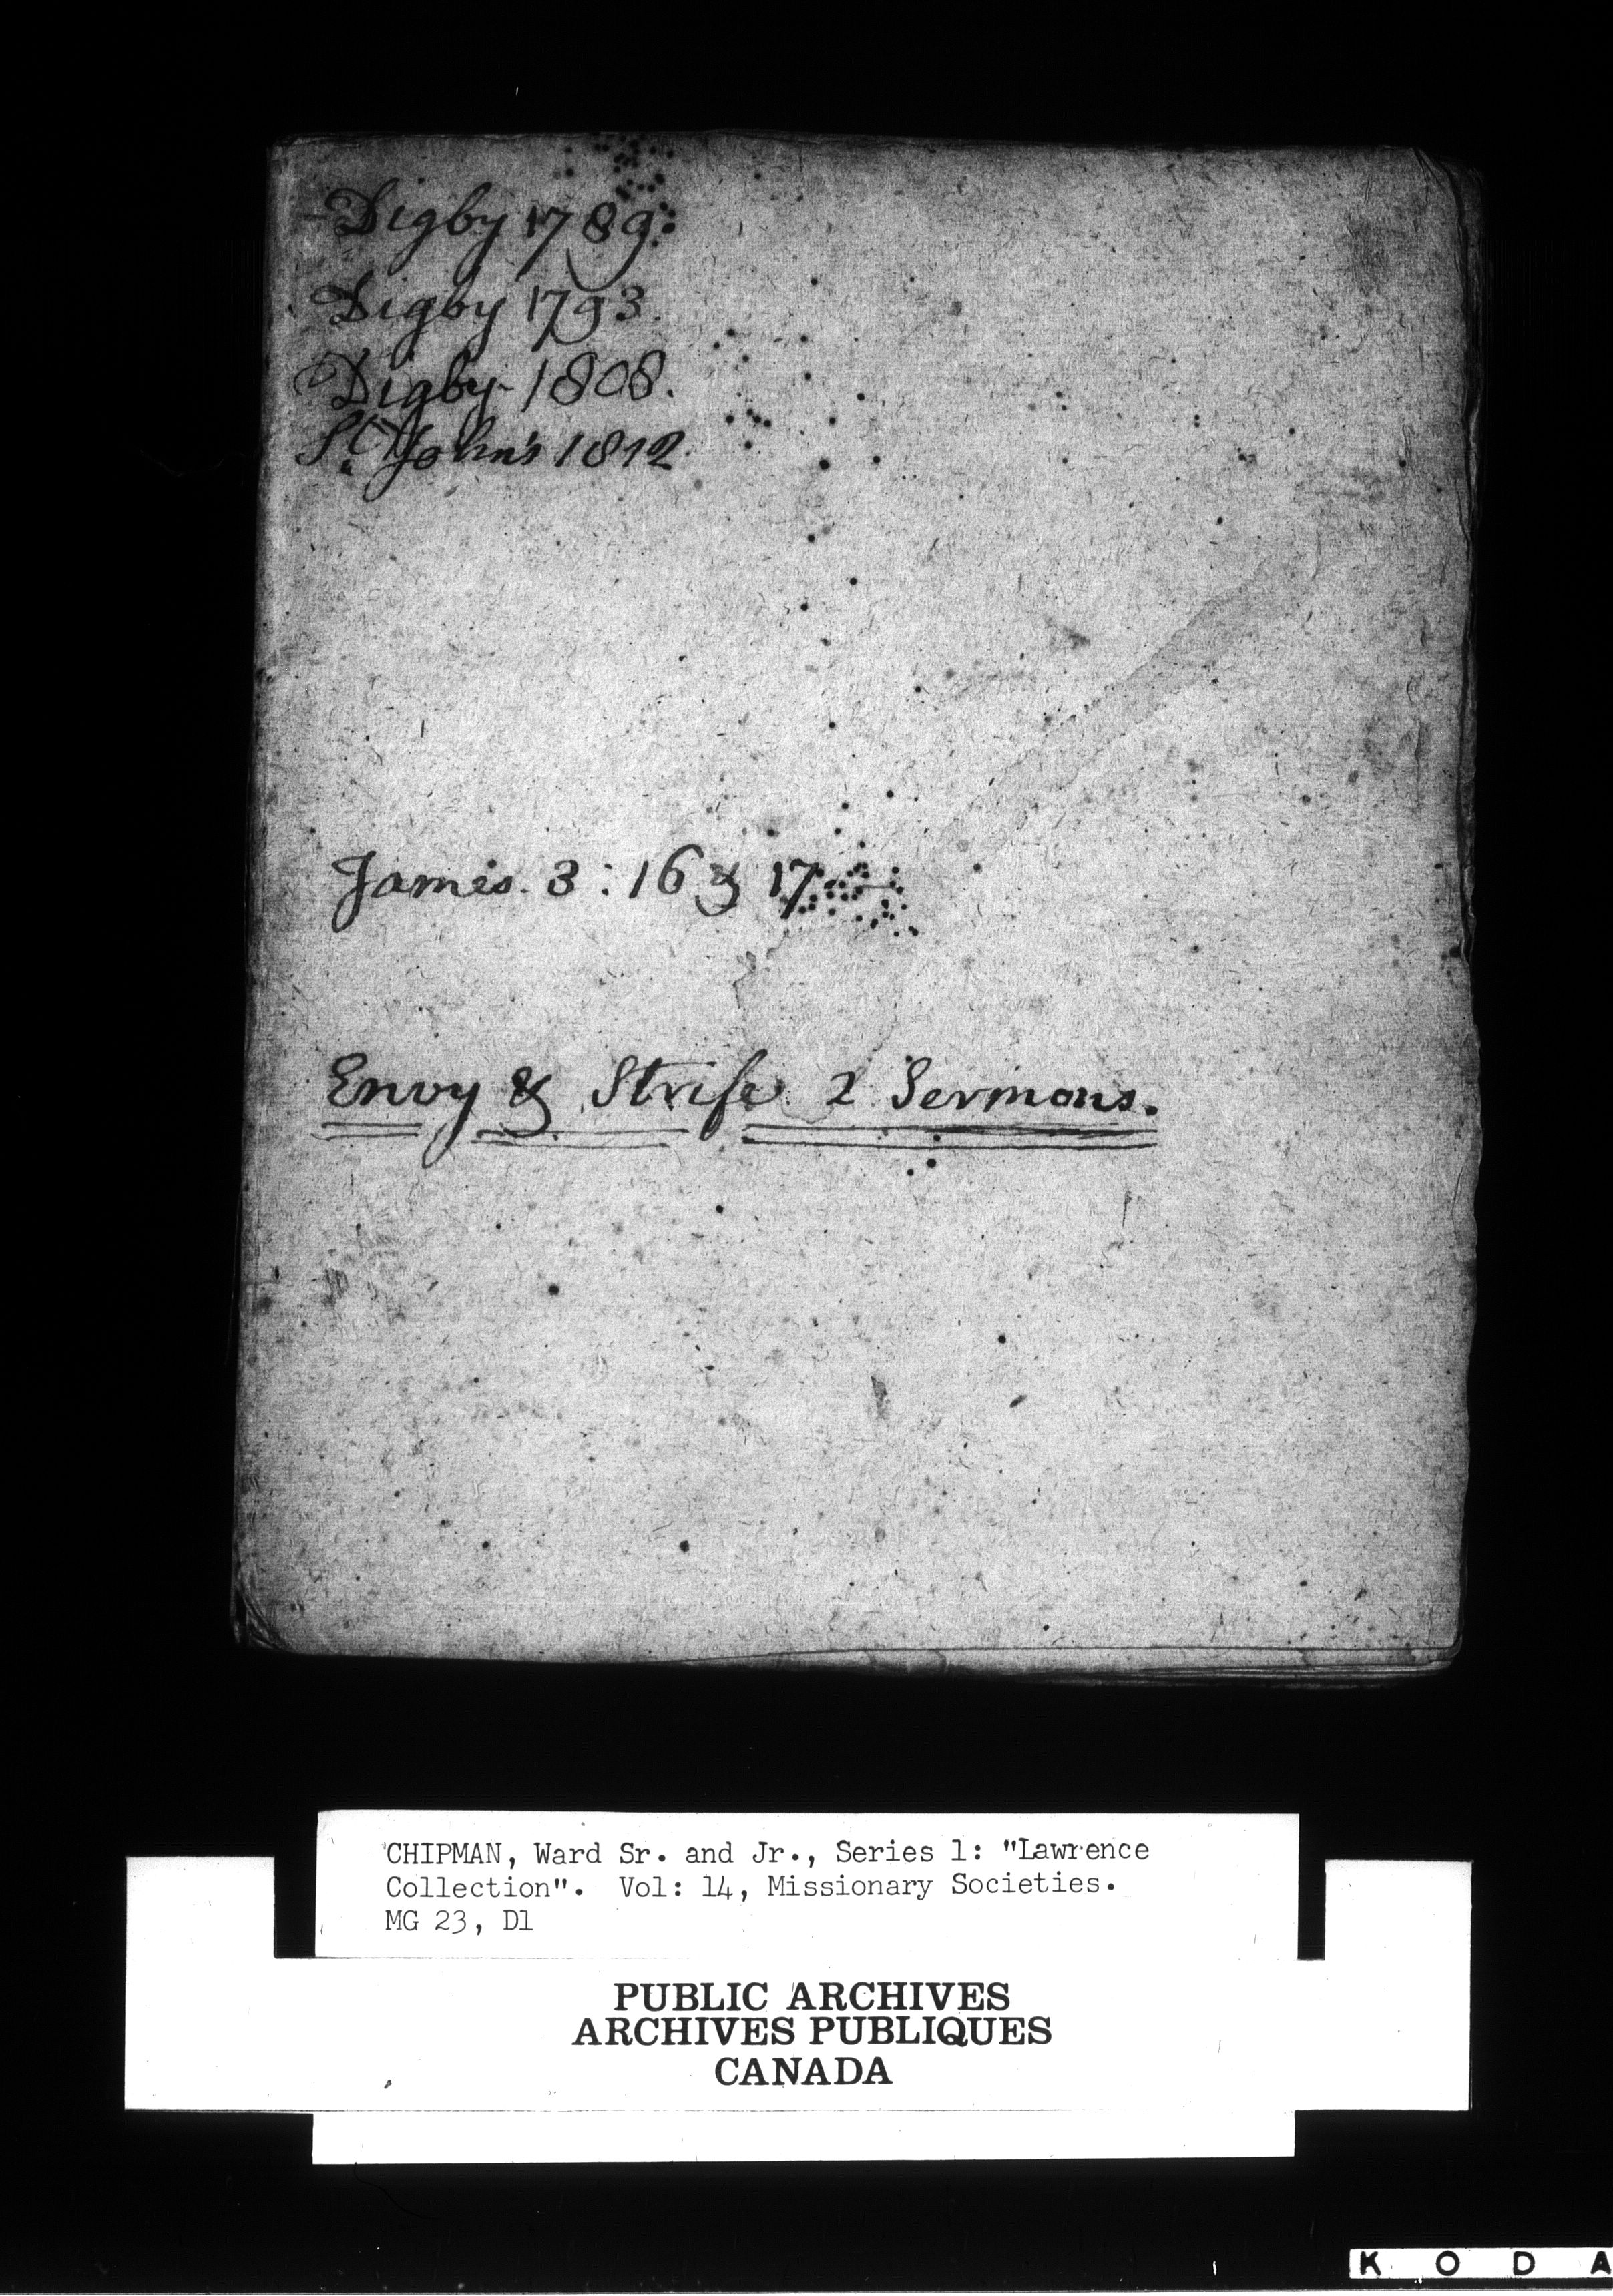 Digby 1789.
Digby 1793.
Digby 1808.
St. John's 1812
James. 3 : 16 & 17.
Envy & Strife 2 Sermons.
CHIPMAN, Ward Sr. and Jr., Series 1: "Lawrence
Collection". Vol: 14, Missionary Societies.
MG 23, D1
PUBLIC ARCHIVES
ARCHIVES PUBLIQUES
CANADA
K O D A